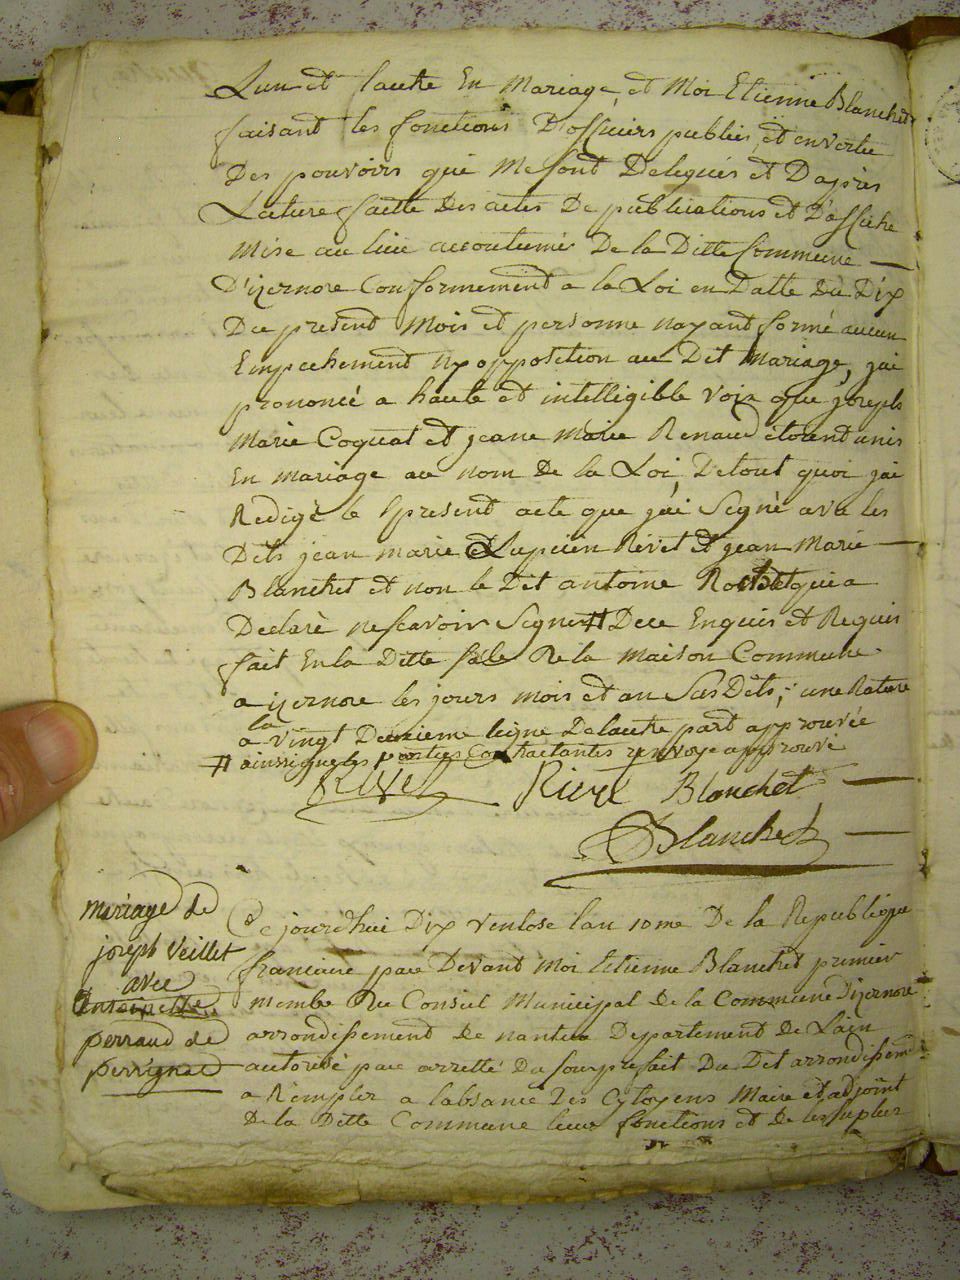 L'un et l'autre En Mariage, et Moi Etienne Blanchet
faisant les fonctions D'officiers publics, et en vertu
Des pouvoirs qui Me sont Delegués et D'apres
Lecture faitte Des actes De publications et D'affiche
Mise au lieu accoutumé De la Ditte Commune —
D'izernore Conformement a la Loi en Datte Du Dix
Du present Mois et personne nayant formé aucun
Empechement ny opposition au Dit Mariage, jai
prononcé a haute et intelligible voix que joseph
Marie Coquat et jeane Marie Renaud etoient unis
En mariage au nom De la Loi, De tout quoi jai
Redigé le present acte que j'ai Signé avec les
Dits jean marie et Lupicien Rivet et jean Marie —
Blanchet et non le Dit antoine qui a
Declaré ne scavoir Signer # De ce Enquis et Requis
fait En la Ditte Sale De la Maison Commune
a izernore les jours mois et an Sus Dits; une Rature
a la vingt Deuxieme ligne De lautre part approuvée
# ainssi que les parties Contractantes renvoye approuvé
Rivet Rivet Blanchet —
Blanchet —
mariage de
joseph Veillet
avec
antoinette
perraud de
perrignat
Ce jourd'hui Dix Ventose l'an 10me De la Republique
francaise par Devant Moi Etienne Blanchet premier
membe Du Conseil Municipal de la Commune D'izernore
arrondissement de nantua Departement de Lain
autorisé par arretté Du sou prefait Du Dit arrondissement
a Rempler a labsance Des Cytoyens Maire et adjoint
De la Ditte Commune leur fonctions et De les supleer